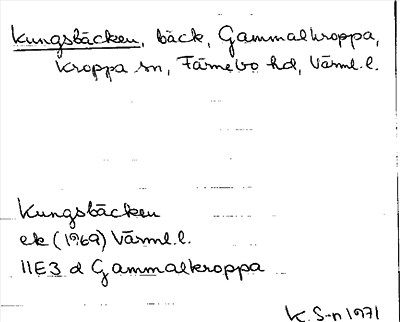 Kungsbäcken, bäck, Gammalkroppa,
Kroppa sn, Färnebo hd, Värml. l.
Kungsbäcken
ek (1969) Värml. l.
11E3 d Gammalkroppa
K. S-n 1971